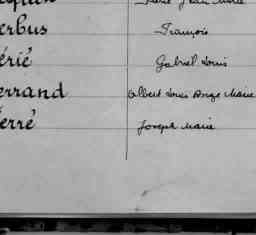 erbus François
érié Gabriel Louis
errand Albert Louis Ange Marie
erré Joseph Marie